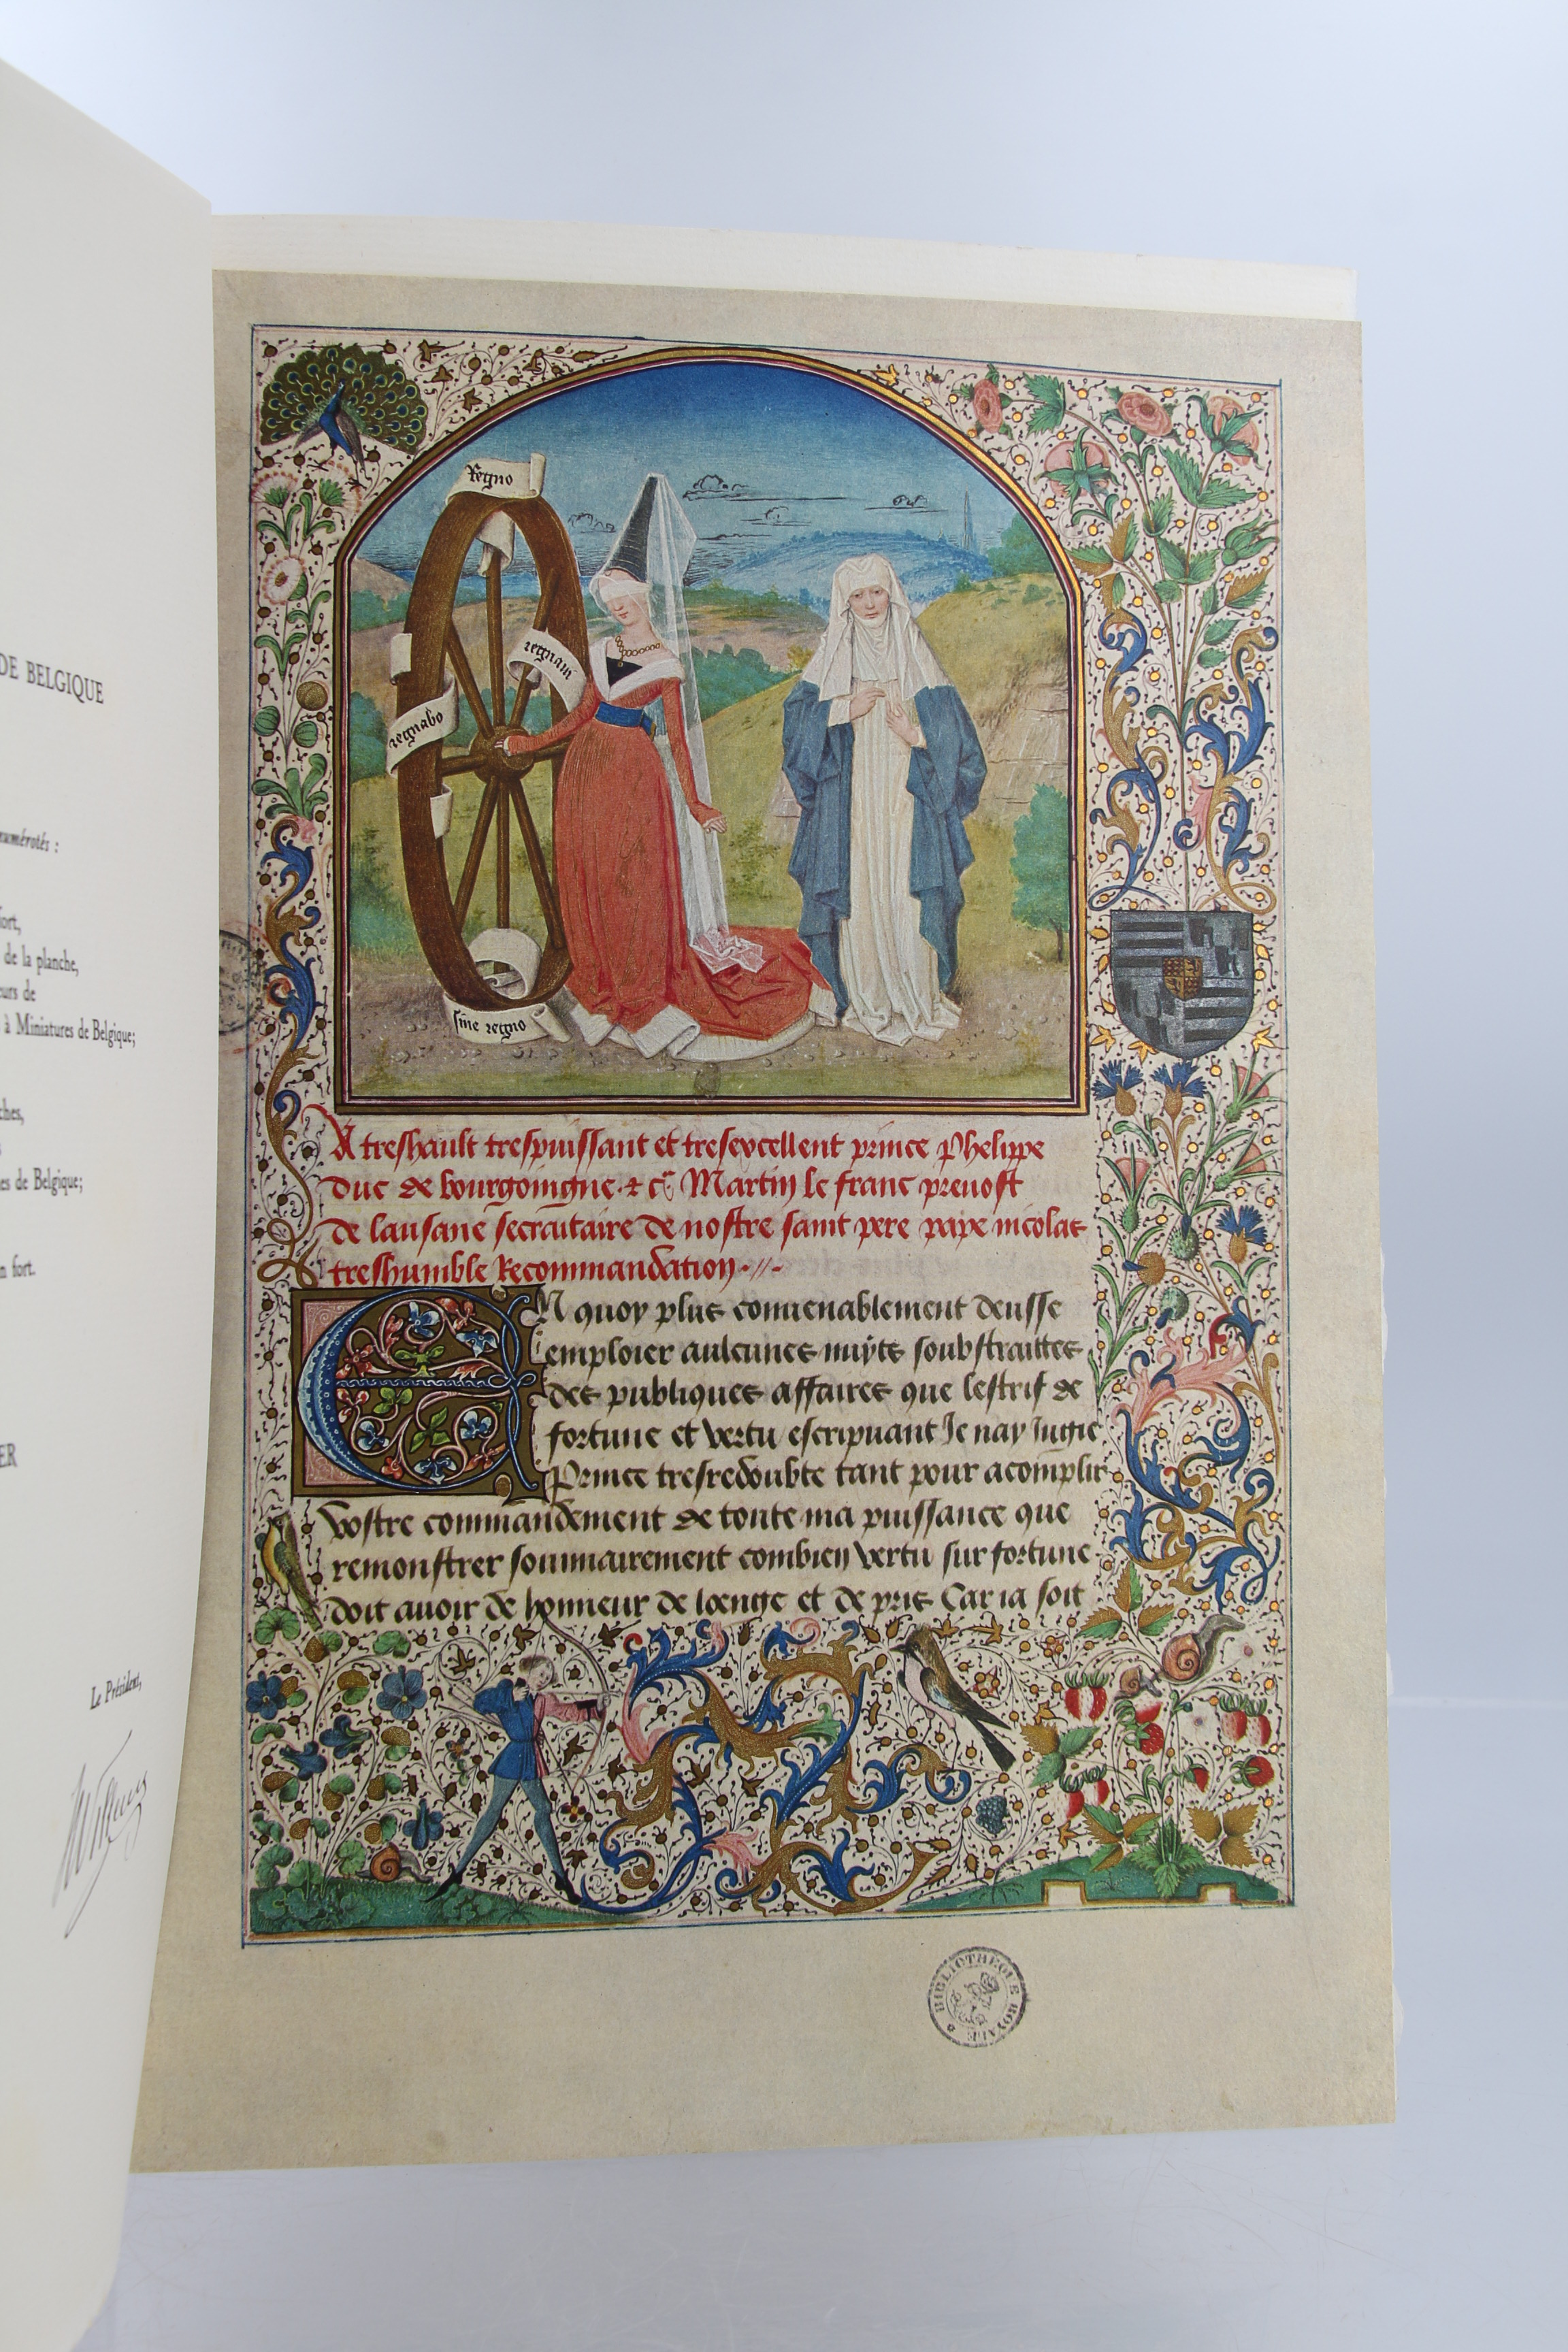 DE BELGIQUE
numérotés :
fort,
de la planche,
eurs de
à Miniatures de Belgique;
ches,
es de Belgique;
n fort.
ER
Le Président,
Regno
regnavi
regnabo
sine regno
A treshault trespuissant et tresexcellent prince Phelippe
duc de bourgoingne & cr Martin le franc prevost
de lausane secraitaire de nostre saint pere pape nicolas
treshumble Recommandation·//·
EN quoy plus convenablement deusse
emploier aulcunes nuyts soubstraittes
des publiques affaires que lestrif de
fortune et vertu escripvant Je nay Jugie
Prince tresredoubte tant pour acomplir
vostre commandement de toute ma puissance que
remonstrer sommairement combien vertu sur fortune
doit avoir de honneur de loenge et de pris Car ia soit
BIBLIOTHEQUE ROYALE